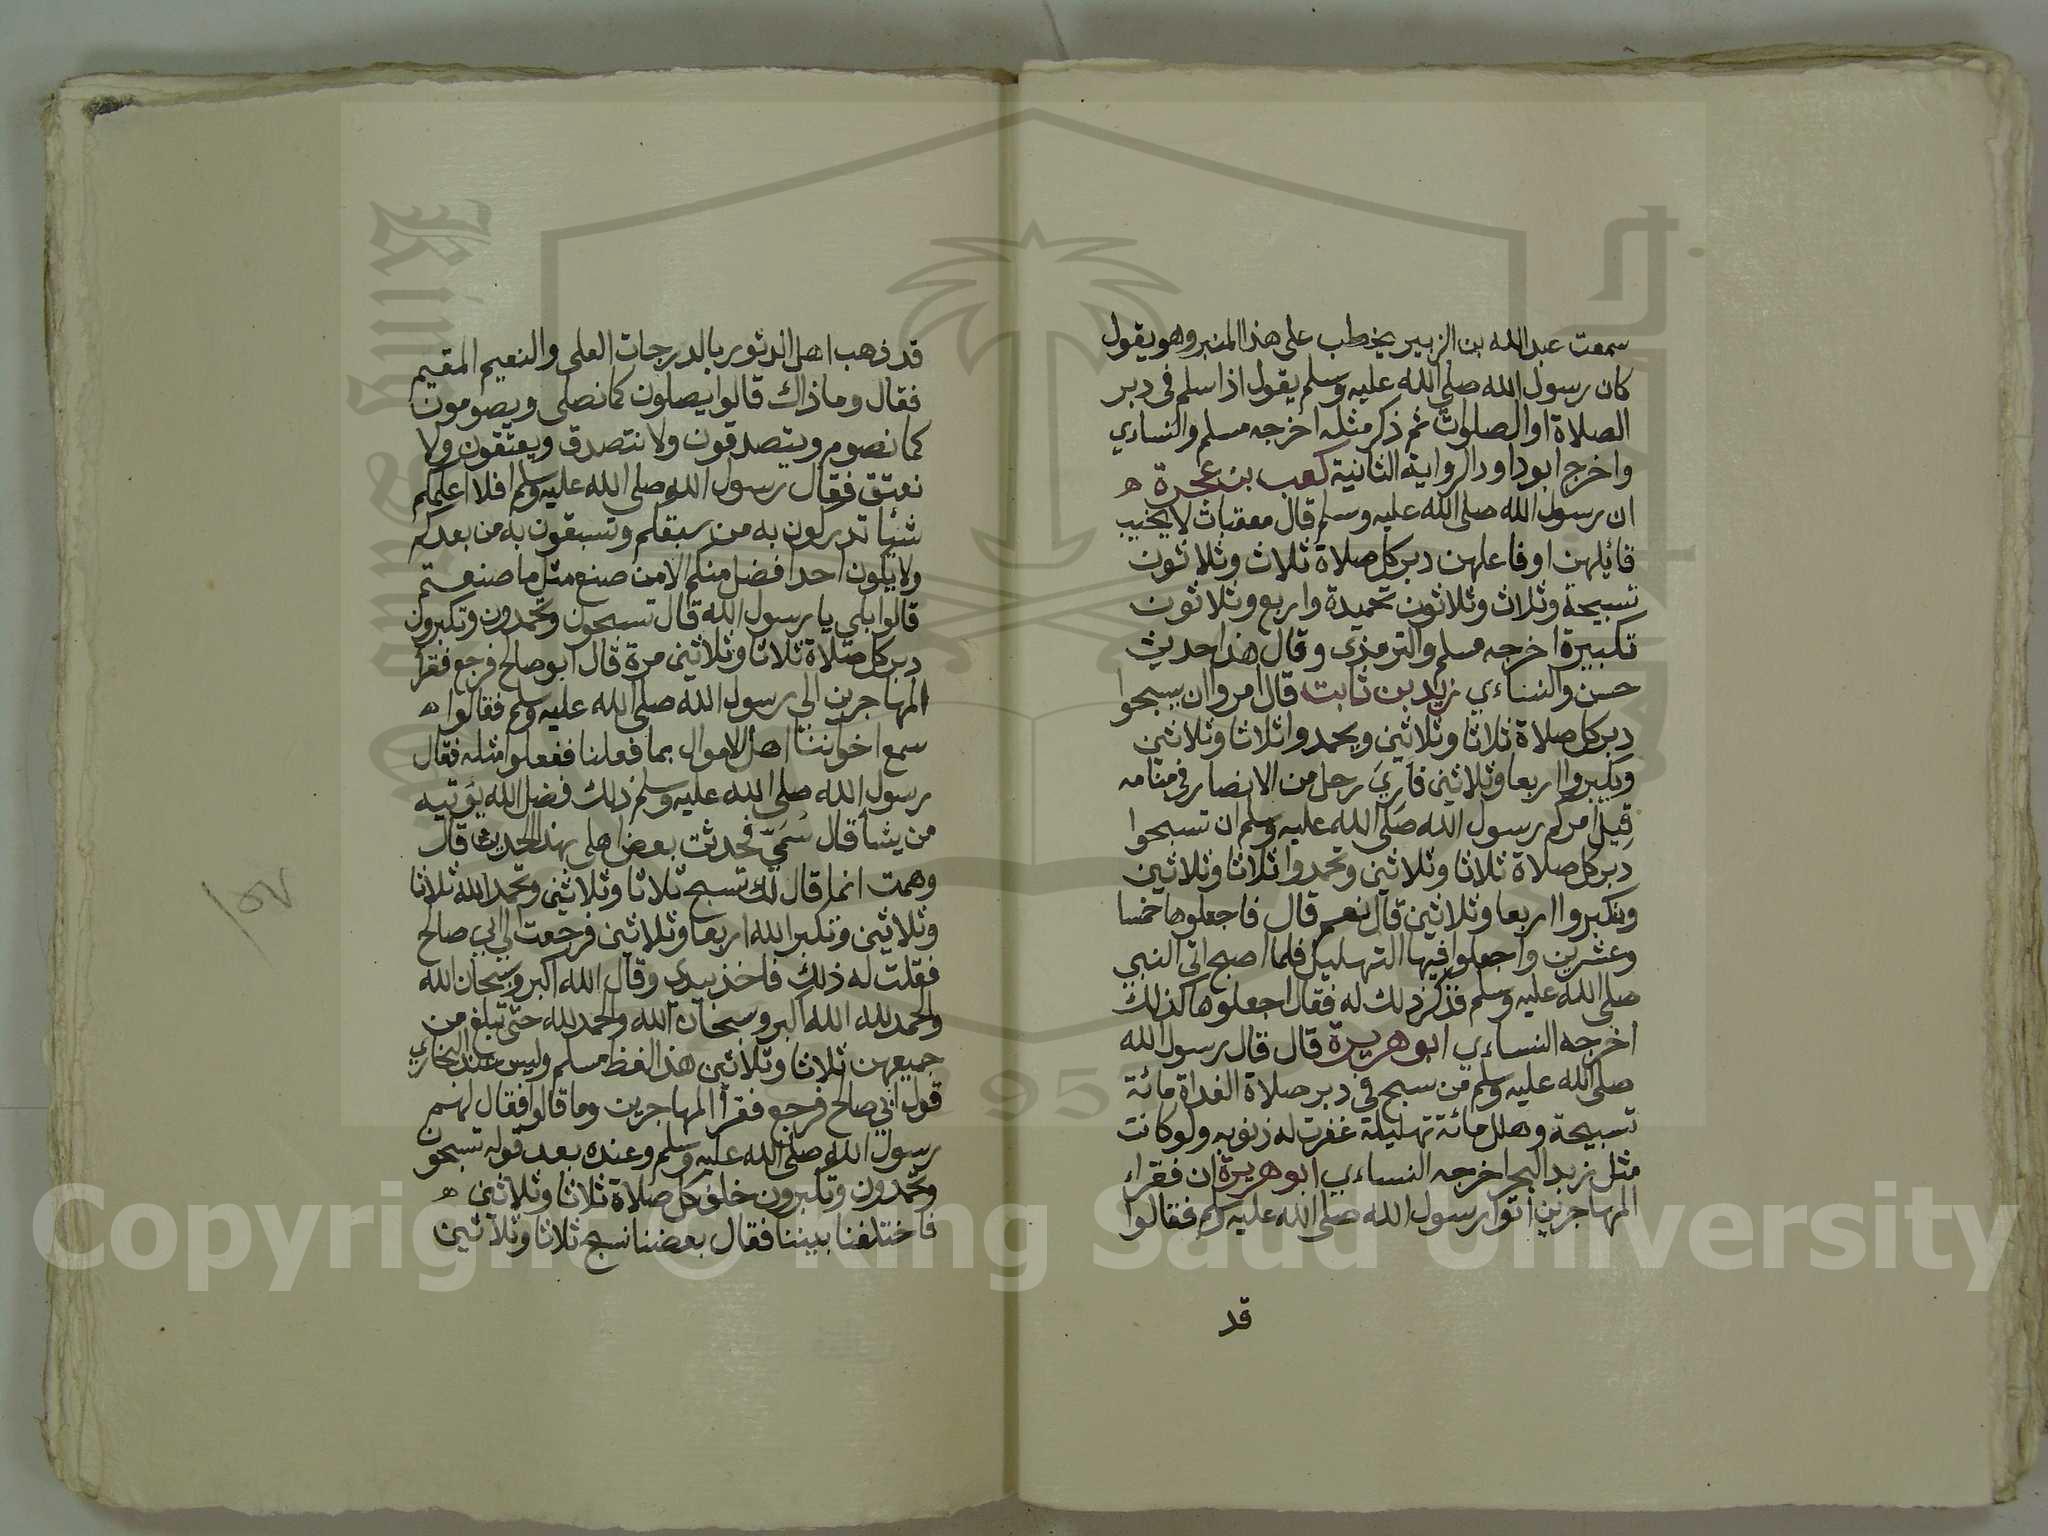 سمعت عبد الله بن الزبير يخطب على هذا المنبر وهو يقول
كان رسول الله صلى الله عليه وسلم يقول اذا سلم في دبر
الصلاة او الصلوات ثم ذكر مثله اخرجه مسلم والنساءي
واخرج ابو داود الرواية الثانية كعب بن عجرة ه
ان رسول الله صلى الله عليه وسلم قال معقبات لا يخيب
قائلهن او فاعلهن دبر كل صلاة ثلاث وثلاثون
تسبيحة وثلاث وثلاثون تحميدة واربع وثلاثون
تكبيرة اخرجه مسلم والترمذي وقال هذا حديث
حسن والنساءي زيد بن ثابت قال امروا ان يسبحوا
دبر كل صلاة ثلاثا وثلاثين ويحمدوا ثلاثا وثلاثين
ويكبروا اربعا وثلاثين فاري رجل من الانصار في منامه
قيل امركم رسول الله صلى الله عليه وسلم ان تسبحوا
دبر كل صلاة ثلاثا وثلاثين وتحمدوا ثلاثا وثلاثين
وتكبروا اربعا وثلاثين قال نعم قال فاجعلوها خمسا
وعشرين واجعلوا فيها التهليل فلما اصبح اتى النبي
صلى الله عليه وسلم فذكر ذلك له فقال اجعلوها كذلك
اخرجه النساءي ابو هريرة قال قال رسول الله
صلى الله عليه وسلم من سبح في دبر صلاة الغداة مائة
تسبيحة وهلل مائة تهليلة غفرت له ذنوبه ولو كانت
مثل زبد البحر اخرجه النساءي ابو هريرة ان فقراء
المهاجرين اتوا رسول الله صلى الله عليه وسلم فقالوا
قد
قد ذهب اهل الدثور بالدرجات العلى والنعيم المقيم
فقال وما ذاك قالوا يصلون كما نصلى ويصومون
كما نصوم ويتصدقون ولا نتصدق ويعتقون ولا
نعتق فقال رسول الله صلى الله عليه وسلم افلا اعلمكم
شيأ تدركون به من سبقكم وتسبقون به من بعدكم
ولا يكون احد افضل منكم الا من صنع مثل ما صنعتم
قالوا بلى يا رسول الله قال تسبحون وتحمدون وتكبرون
دبر كل صلاة ثلاثا وثلاثين مرة قال ابو صالح فرجع فقرأ
المهاجرين الى رسول الله صلى الله عليه وسلم فقالوا ه
سمع اخواننا اهل الاموال بما فعلنا ففعلوا مثله فقال
رسول الله صلى الله عليه وسلم ذلك فضل الله يؤتيه
من يشأ قال سمي فحدثت بعض اهلى بهذا الحديث قال
وهمت انما قال لك تسبح ثلاثا وثلاثين وتحمد الله ثلاثا
وثلاثين وتكبر الله اربعا وثلاثين فرجعت الى ابي صالح
فقلت له ذلك فاخذ بيدى وقال الله اكبر وسبحان الله
والحمد لله الله اكبر وسبحان الله والحمد لله حتى تبلغ من
جميعهن ثلاثا وثلاثين هذا لفظ مسلم وليس عند البخاري
قول ابي صالح فرجع فقرأ المهاجرين وما قالوا فقال لهم
رسول الله صلى الله عليه وسلم وعنده بعد قوله تسبحون
وتحمدون وتكبرون خلف كل صلاة ثلاثا وثلاثين ه
فاختلفنا بيننا فقال بعضنا نسبح ثلاثا وثلاثين
١٥٧
Copyright © King Saud University